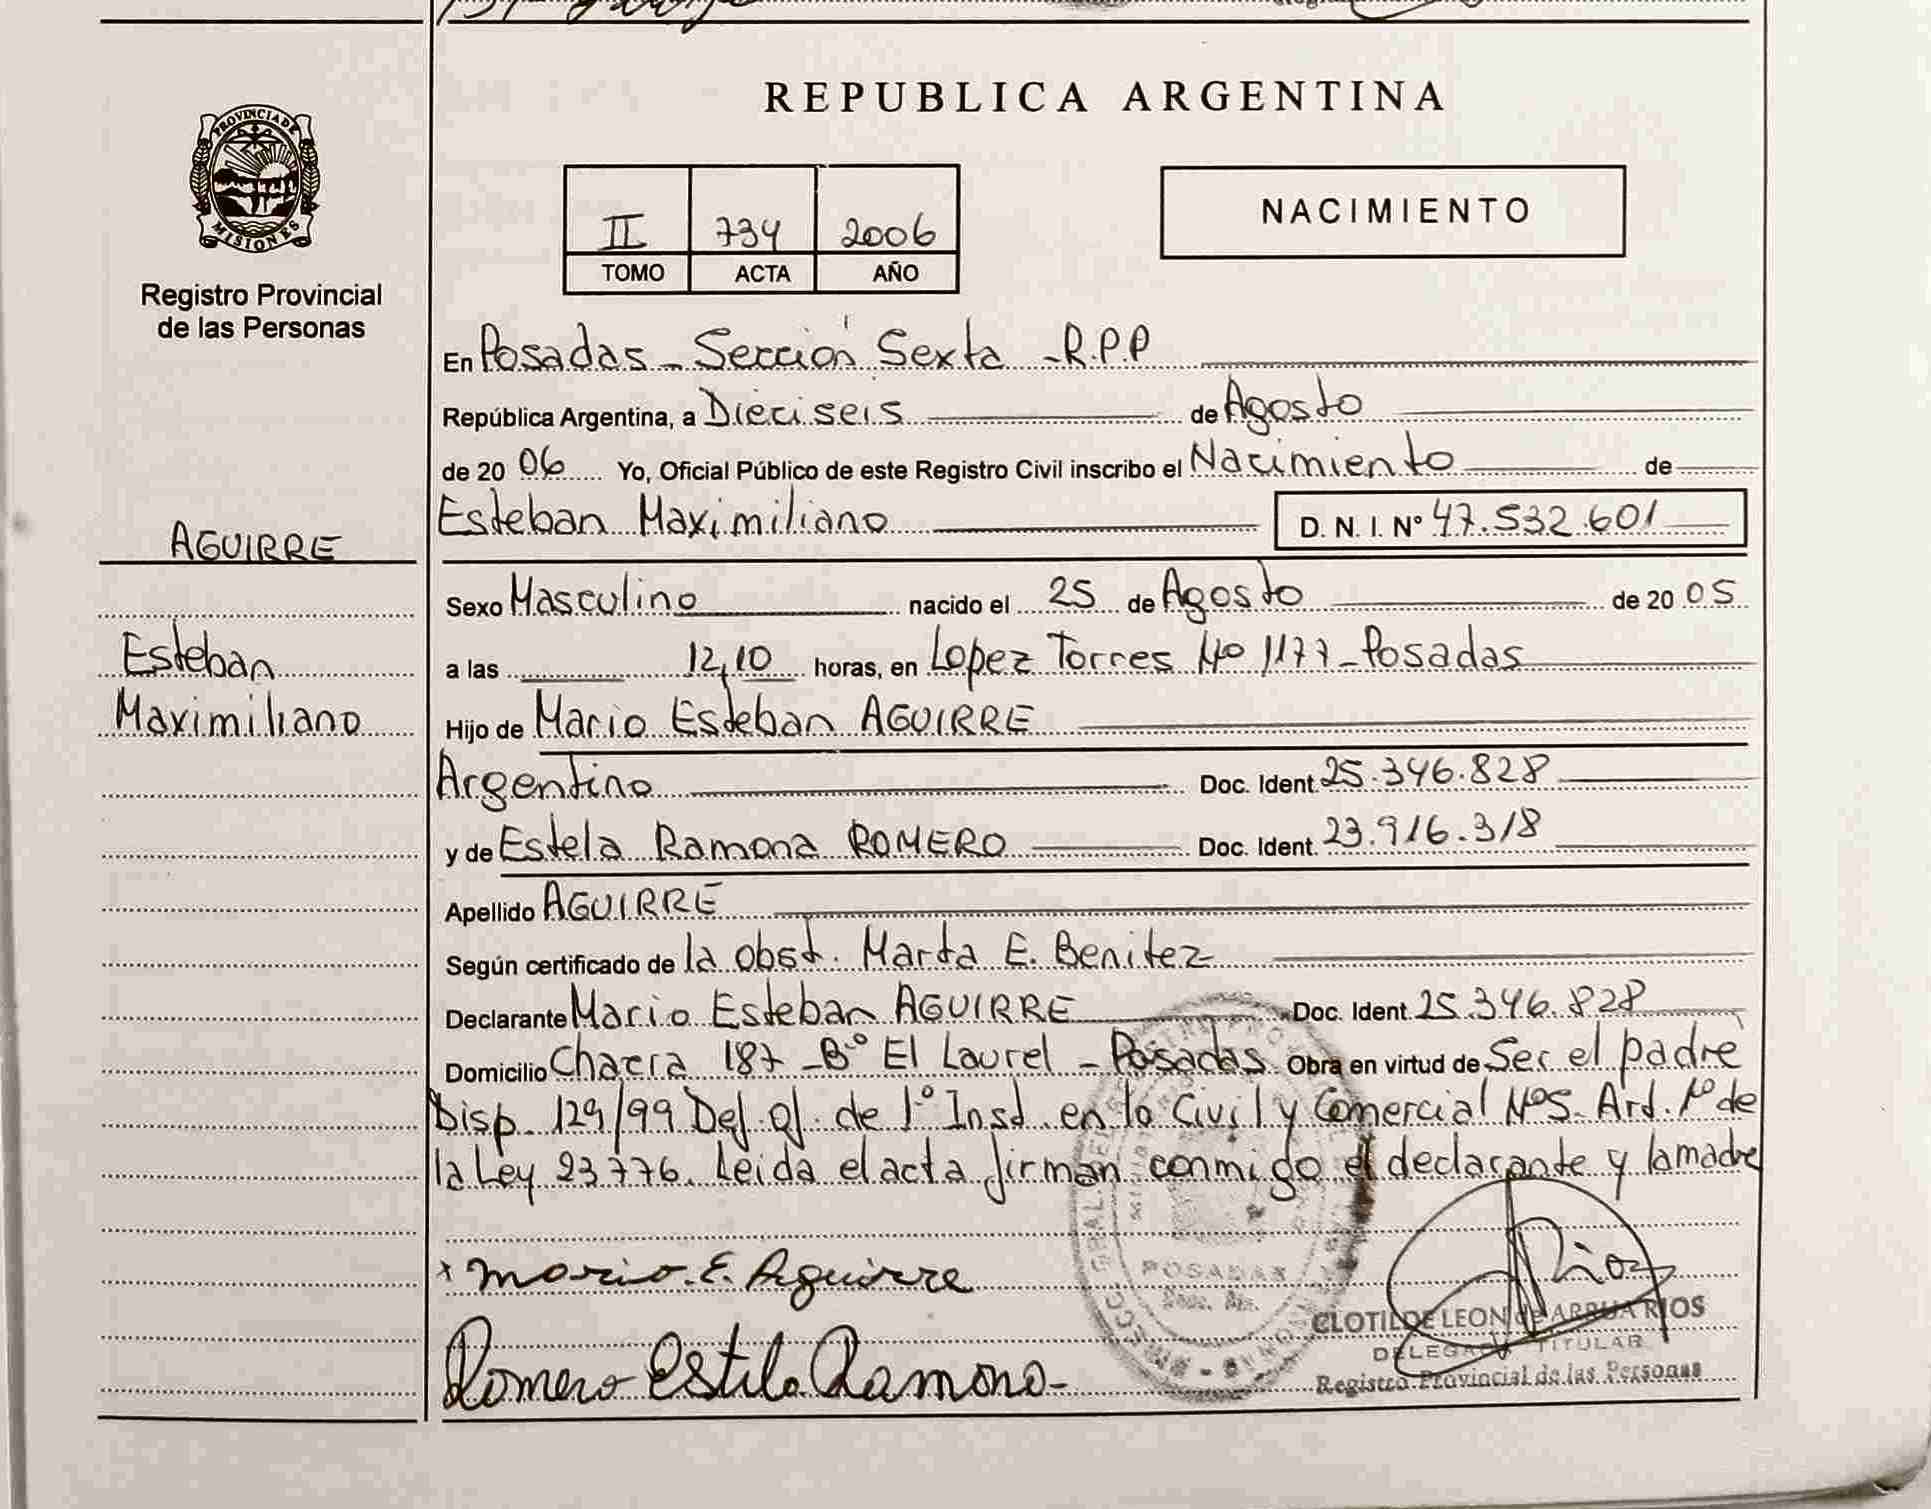 REPUBLICA ARGENTINA
PROVINCIA DE
MISIONES
Registro Provincial
de las Personas
II 734 2006
TOMO ACTA AÑO
NACIMIENTO
En Posadas - Sección Sexta - R.P.P
República Argentina, a Dieciseis de Agosto
de 20 06 Yo, Oficial Público de este Registro Civil inscribo el Nacimiento de
Esteban Maximiliano D. N. I. Nº 47.532.601
AGUIRRE
Esteban
Maximiliano
Sexo Masculino nacido el 25 de Agosto de 20 05
a las 12,10 horas, en Lopez Torres Nº 1177 - Posadas
Hijo de Mario Esteban AGUIRRE
Argentino Doc. Ident. 25.346.828
y de Estela Ramona ROMERO Doc. Ident. 23.916.318
Apellido AGUIRRE
Según certificado de la obst. Marta E. Benitez
Declarante Mario Esteban AGUIRRE Doc. Ident. 25.346.828
Domicilio Chacra 187 - Bº El Laurel - Posadas Obra en virtud de Ser el padre
Disp. 129/99 Def. Of. de 1º Inst. en lo Civil y Comercial Nº5. Art. 1º de
la Ley 23776. Leida el acta firman conmigo el declarante y la madre
x Mario. E. Aguirre
Romero Estela Ramona
POSADAS
Rios
CLOTILDE LEON de ARRUA RIOS
DELEGADA TITULAR
Registro Provincial de las Personas